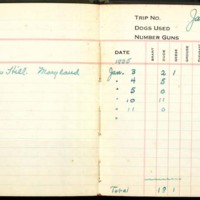 TRIP NO.
DOGS USED
NUMBER GUNS
DATE BRANT DUCK GEESE
1925
Hill Maryland Jan. 3 2 1
" 4 5
" 5 0
" 10 11
" 11 0
Total 19 1